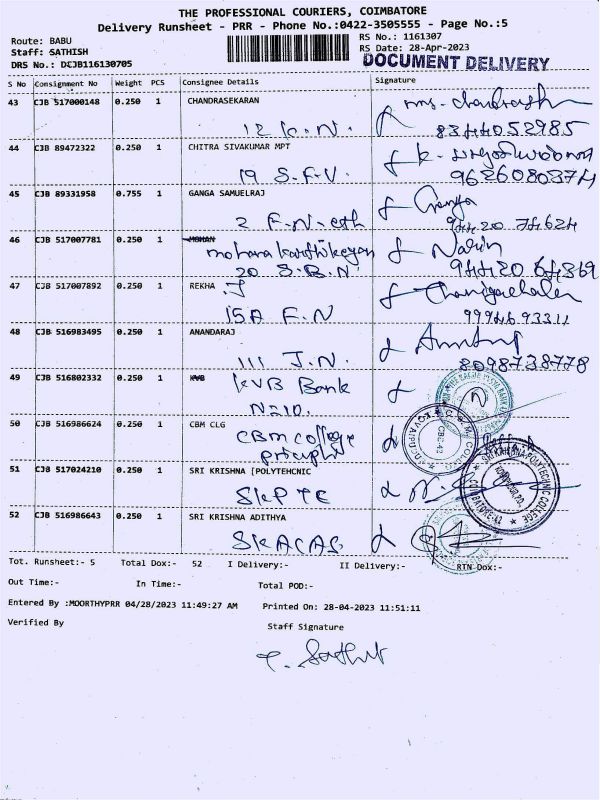 THE PROFESSIONAL COURIERS, COIMBATORE
Delivery Runsheet - PRR - Phone No.:0422-3505555 - Page No.:5
Route: BABU
RS No.: 1161307
Staff: SATHISH
RS Date: 28-Apr-2023
DRS No.: DCJB116130705
DOCUMENT DELIVERY
S No Consignment No Weight PCS Consignee Details Signature
43 CJB 517000148 0.250 1 CHANDRASEKARAN
12 K.N. 8344052985
44 CJB 89472322 0.250 1 CHITRA SIVAKUMAR MPT
19 S.F.V. 9626080374
45 CJB 89331958 0.755 1 GANGA SAMUELRAJ Ganga
2 F.N-eth 94420 74624
46 CJB 517007781 0.250 1 MOHAN
mohana karthikeyan Navin
20 S.B.N. 94420 64869
47 CJB 517007892 0.250 1 REKHA .J
15A F.N 9994693311
48 CJB 516983495 0.250 1 ANANDARAJ
111 J.N. 8098738778
49 CJB 516802332 0.250 1 KVB KVB Bank
N210.
50 CJB 516986624 0.250 1 CBM CLG
CBM college
51 CJB 517024210 0.250 1 SRI KRISHNA [POLYTEHCNIC
SKPTC
52 CJB 516986643 0.250 1 SRI KRISHNA ADITHYA
SKACAS
SRI KRISHNA POLYTECHNIC COLLEGE
COIMBATORE-42
Tot. Runsheet:- 5 Total Dox:- 52 I Delivery:- II Delivery:- RTN Dox:-
Out Time:- In Time:- Total POD:-
Entered By :MOORTHYPRR 04/28/2023 11:49:27 AM Printed On: 28-04-2023 11:51:11
Verified By Staff Signature